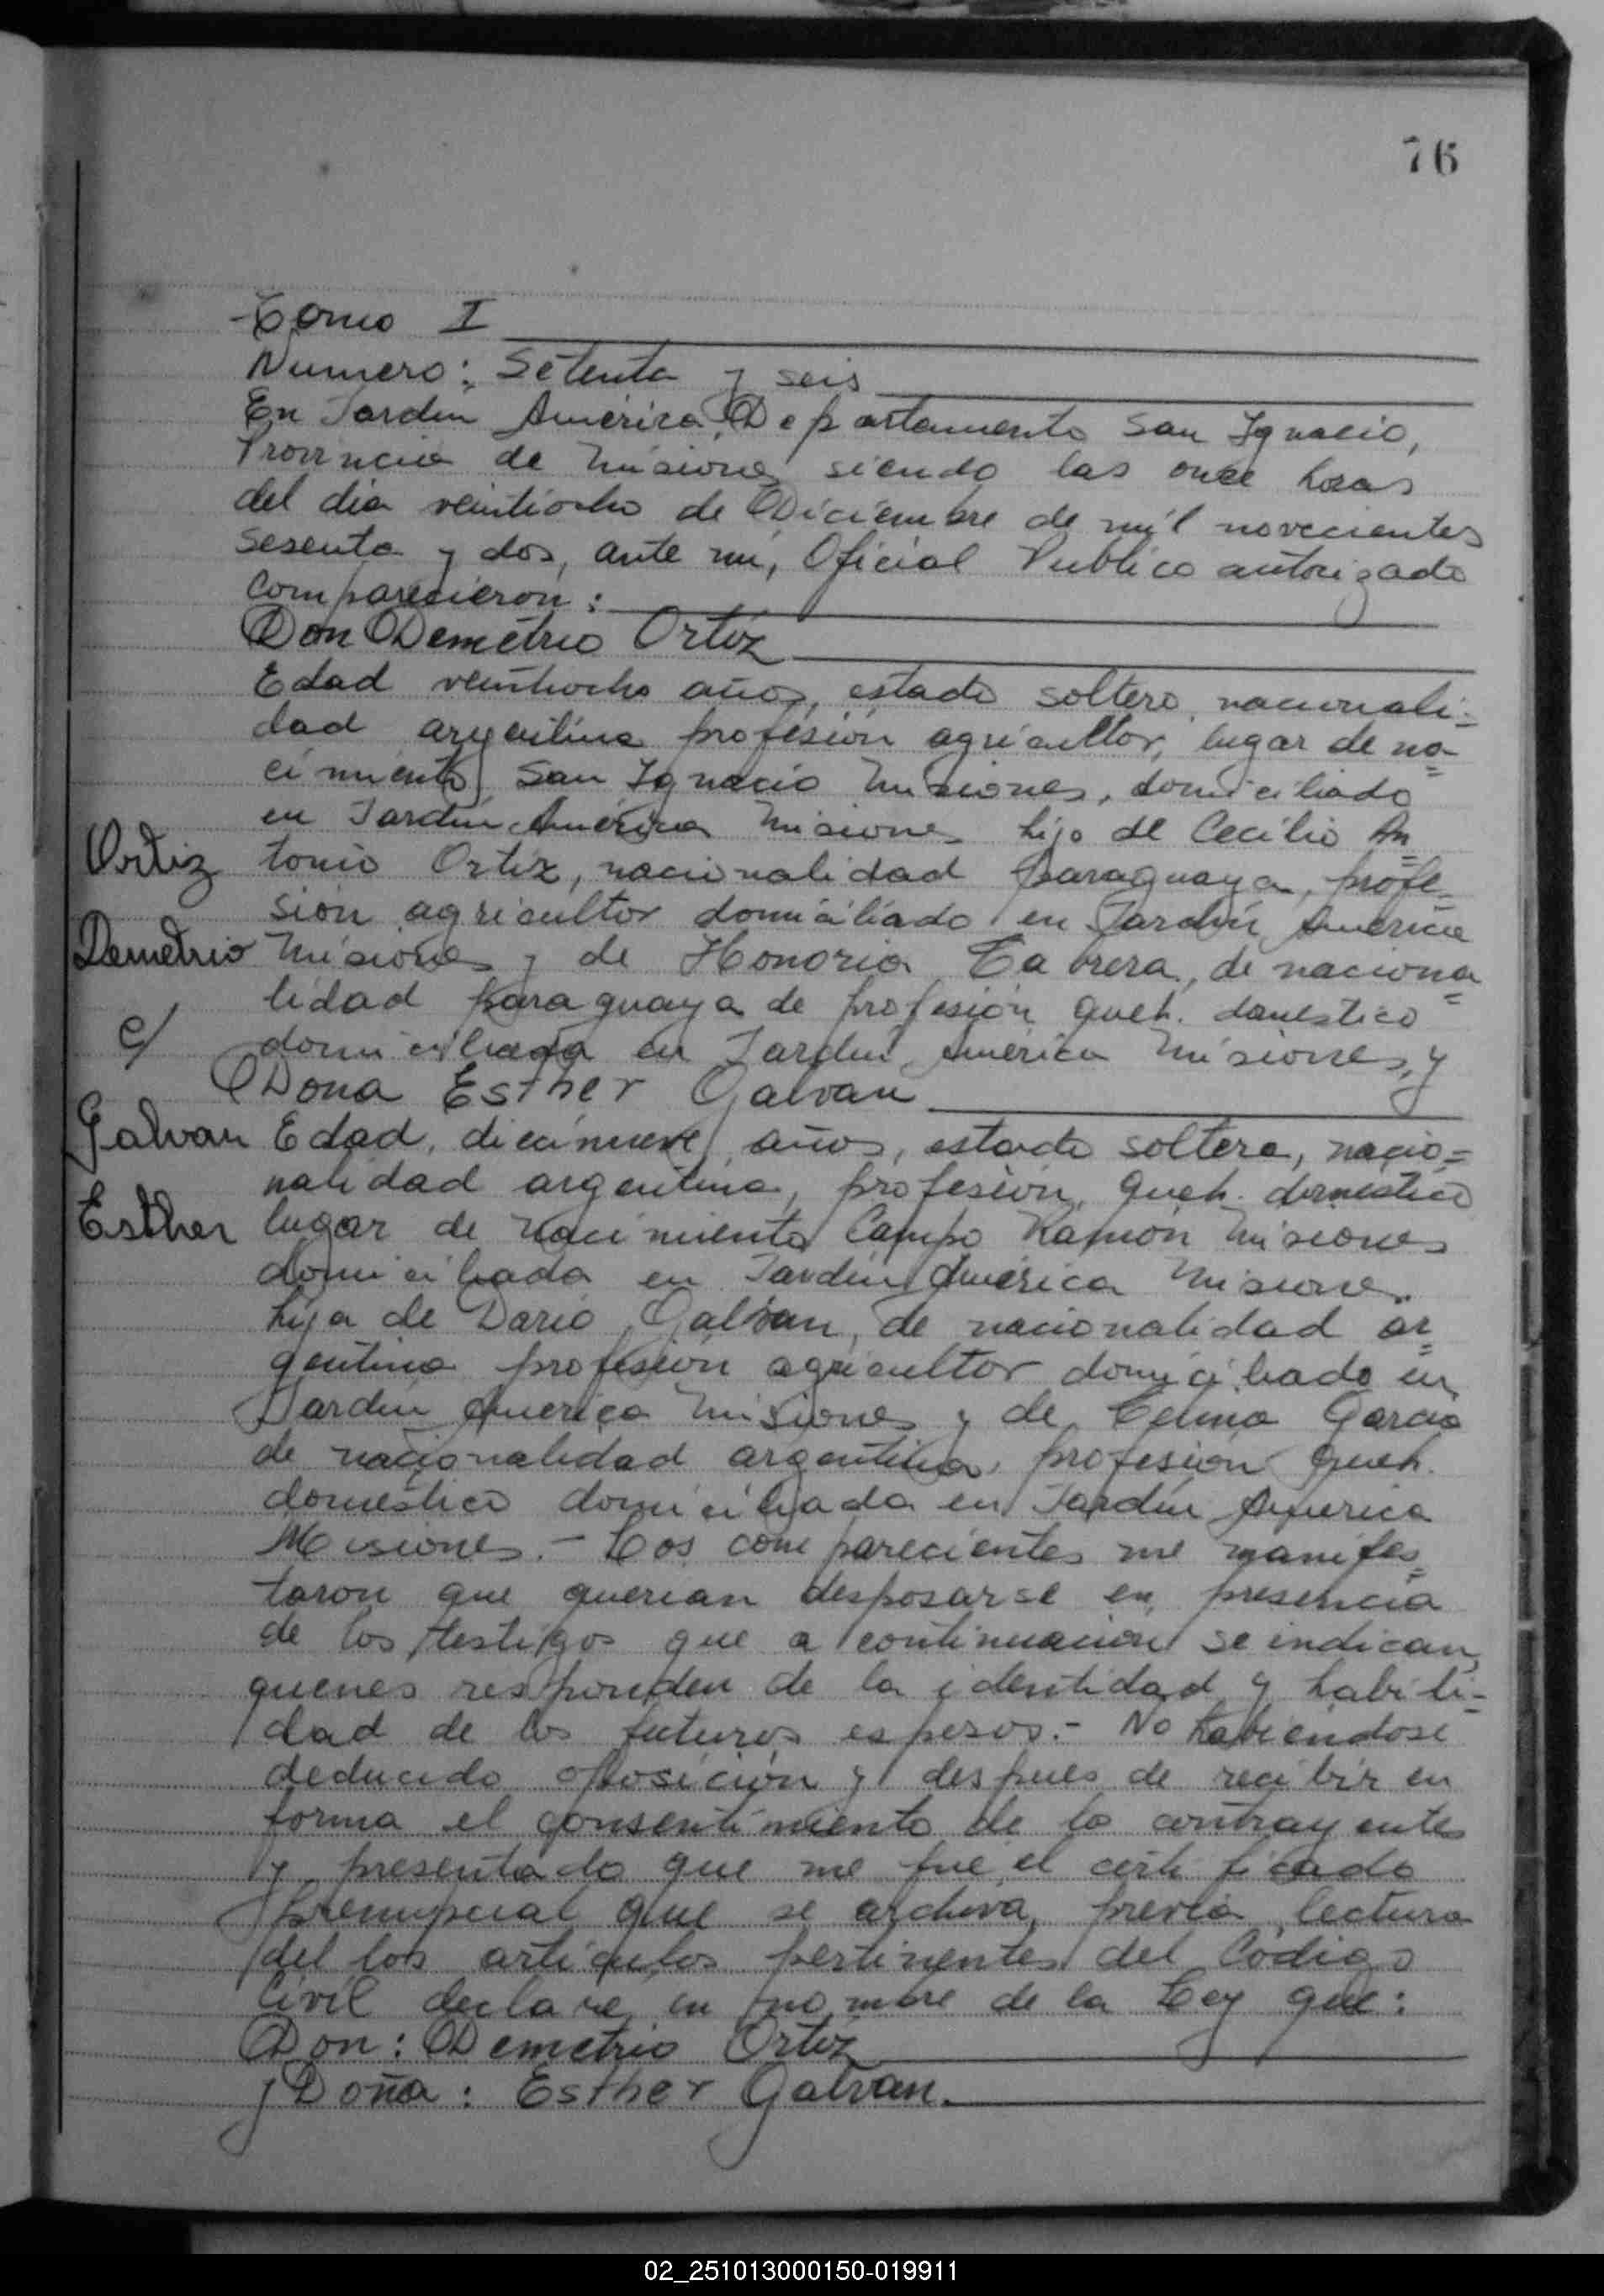 76
Tomo I
Numero: Setenta y seis
En Jardin América, Departamento San Ignacio,
Provincia de Misiones siendo las once horas
del dia veintiocho de Diciembre de mil novecientos
sesenta y dos, ante mi, Oficial Publico autorizado
comparecieron:
Don Demetrio Ortíz
Edad veintiocho años, estado soltero, nacionali=
dad argentina profesión agricultor, lugar de na=
cimiento San Ignacio Misiones, domiciliado
en Jardin América Misiones hijo de Cecilio An
Ortiz tonio Ortíz, nacionalidad paraguaya, profe=
sión agricultor domiciliado en Jardín America
Demetrio Misiones y de Honoria Cabrera, de naciona=
lidad paraguaya de profesión queh. domestico
c/ domiciliada en Jardin America Misiones, y
Dona Esther Galvan
Galvan Edad, diecinueve años, estado soltera, nacio=
nalidad argentina, profesión queh. domestico
Esther lugar de nacimiento Campo Ramón Misiones
domiciliada en Jardin América Misiones
hija de Dario Galvan, de nacionalidad ar=
gentina profesión agricultor domiciliado en
Jardin America Misiones y de Garcia
de nacionalidad argentina, profesion queh.
domestico domiciliada en Jardín America
Misiones.- Los comparecientes me manifes=
taron que querian desposarse en presencia
de los testigos que a continuacion se indican,
quenes responden de la identidad y habili-
dad de los futuros esposos.- No habiendose
deducido oposición y despues de recibir en
forma el consentimiento de lo contrayentes
y presentado que me fue el certificado
prenupcial que se archiva, previa lectura
del los articulos pertinentes del Código
Civil declare en nombre de la Ley que:
Don: Demetrio Ortíz
y Doña: Esther Galvan.
02_251013000150-019911